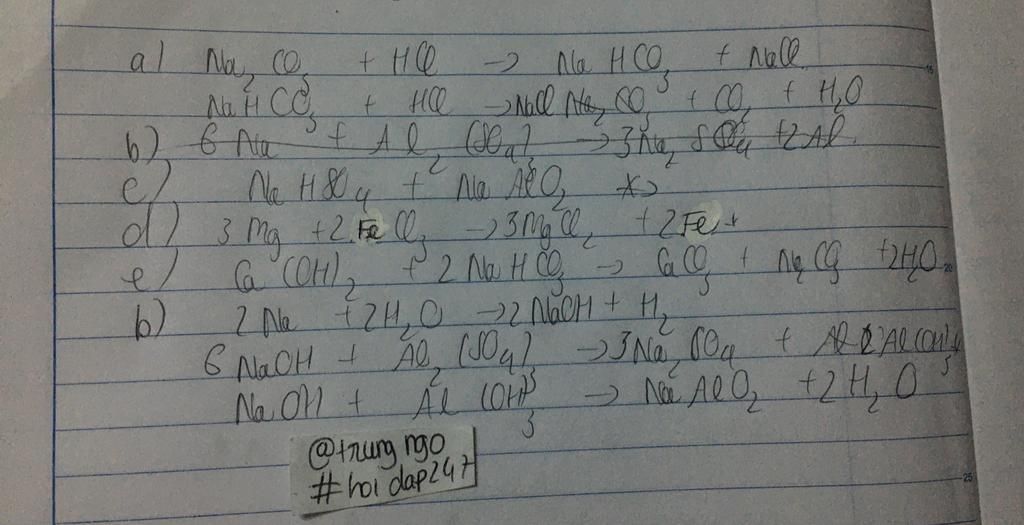 a) Na₂CO₃ + HCl → NaHCO₃ + NaCl
NaHCO₃ + HCl → NaCl Na₂CO₃ + CO₂ + H₂O
b) 6Na + Al₂(SO₄)₃ → 3Na₂SO₄ + 2Al
c) NaHSO₄ + NaAlO₂
d) 3Mg + 2FeCl₃ → 3MgCl₂ + 2Fe
e) Ca(OH)₂ + 2NaHCO₃ → CaCO₃ + Na₂CO₃ + 2H₂O 20
b) 2Na + 2H₂O → 2NaOH + H₂
6NaOH + Al₂(SO₄)₃ → 3Na₂SO₄ + 2Al(OH)₃
NaOH + Al(OH)₃ → NaAlO₂ + 2H₂O
@trung ngo
#hoidap247
25